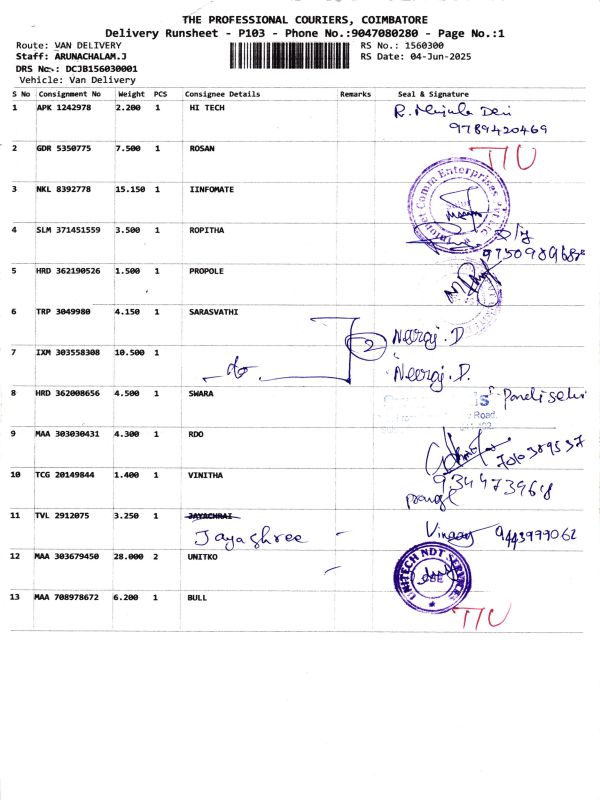 THE PROFESSIONAL COURIERS, COIMBATORE
Delivery Runsheet - P103 - Phone No.:9047080280 - Page No.:1
Route: VAN DELIVERY RS No.: 1560300
Staff: ARUNACHALAM.J RS Date: 04-Jun-2025
DRS No.: DCJB156030001
Vehicle: Van Delivery
S No Consignment No Weight PCS Consignee Details Remarks Seal & Signature
1 APK 1242978 2.200 1 HI TECH
9789420469
2 GDR 5350775 7.500 1 ROSAN T/U
3 NKL 8392778 15.150 1 IINFOMATE
Infonet Comm Enterprises Pvt Ltd
4 SLM 371451559 3.500 1 ROPITHA
5 HRD 362190526 1.500 1 PROPOLE
6 TRP 3049980 4.150 1 SARASVATHI
2 Neeraj. D
7 IXM 303558308 10.500 1
do Neeraj. D.
8 HRD 362008656 4.500 1 SWARA
Road.
9 MAA 303030431 4.300 1 RDO
10 TCG 20149844 1.400 1 VINITHA
9344739618
11 TVL 2912075 3.250 1 JAYACHRAI
Jayashree - Vinaay 9443999062
12 MAA 303679450 28.000 2 UNITKO
UNITECH NDT SERVICES
CBE
13 MAA 708978672 6.200 1 BULL
T/U